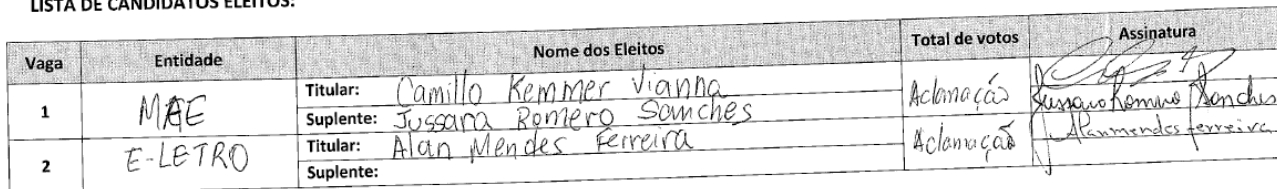 LISTA DE CANDIDATOS ELEITOS:
Vaga Entidade Nome dos Eleitos Total de votos Assinatura
1 MAE Titular: Camillo Kemmer Vianna Aclamação
Suplente: Jussara Romero Sanches Jussara Romero Sanches
2 E-LETRO Titular: Alan Mendes Ferreira Aclamação Alan mendes ferreira
Suplente: